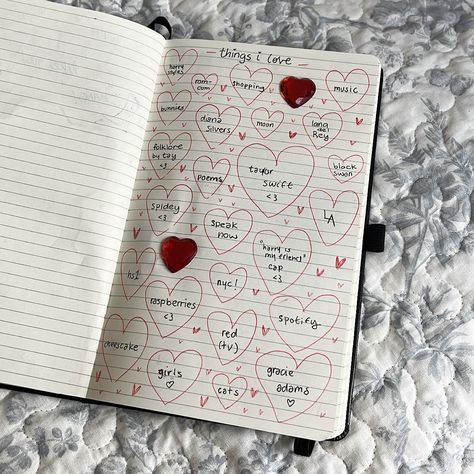 - things i love -
harry
styles
rom-
com
shopping
music
bunnies
diana
silvers
moon
lana
del
Rey
folklore
by tay
<3
poems
taylor
swift
<3
black
swan
spidey
<3
speak
now
LA
"harry is
my friend"
cap
<3
hs1
nyc!
raspberries
<3
red
(tv)
spotify
cheesecake
girls
♡
cats
gracie
adams
♡